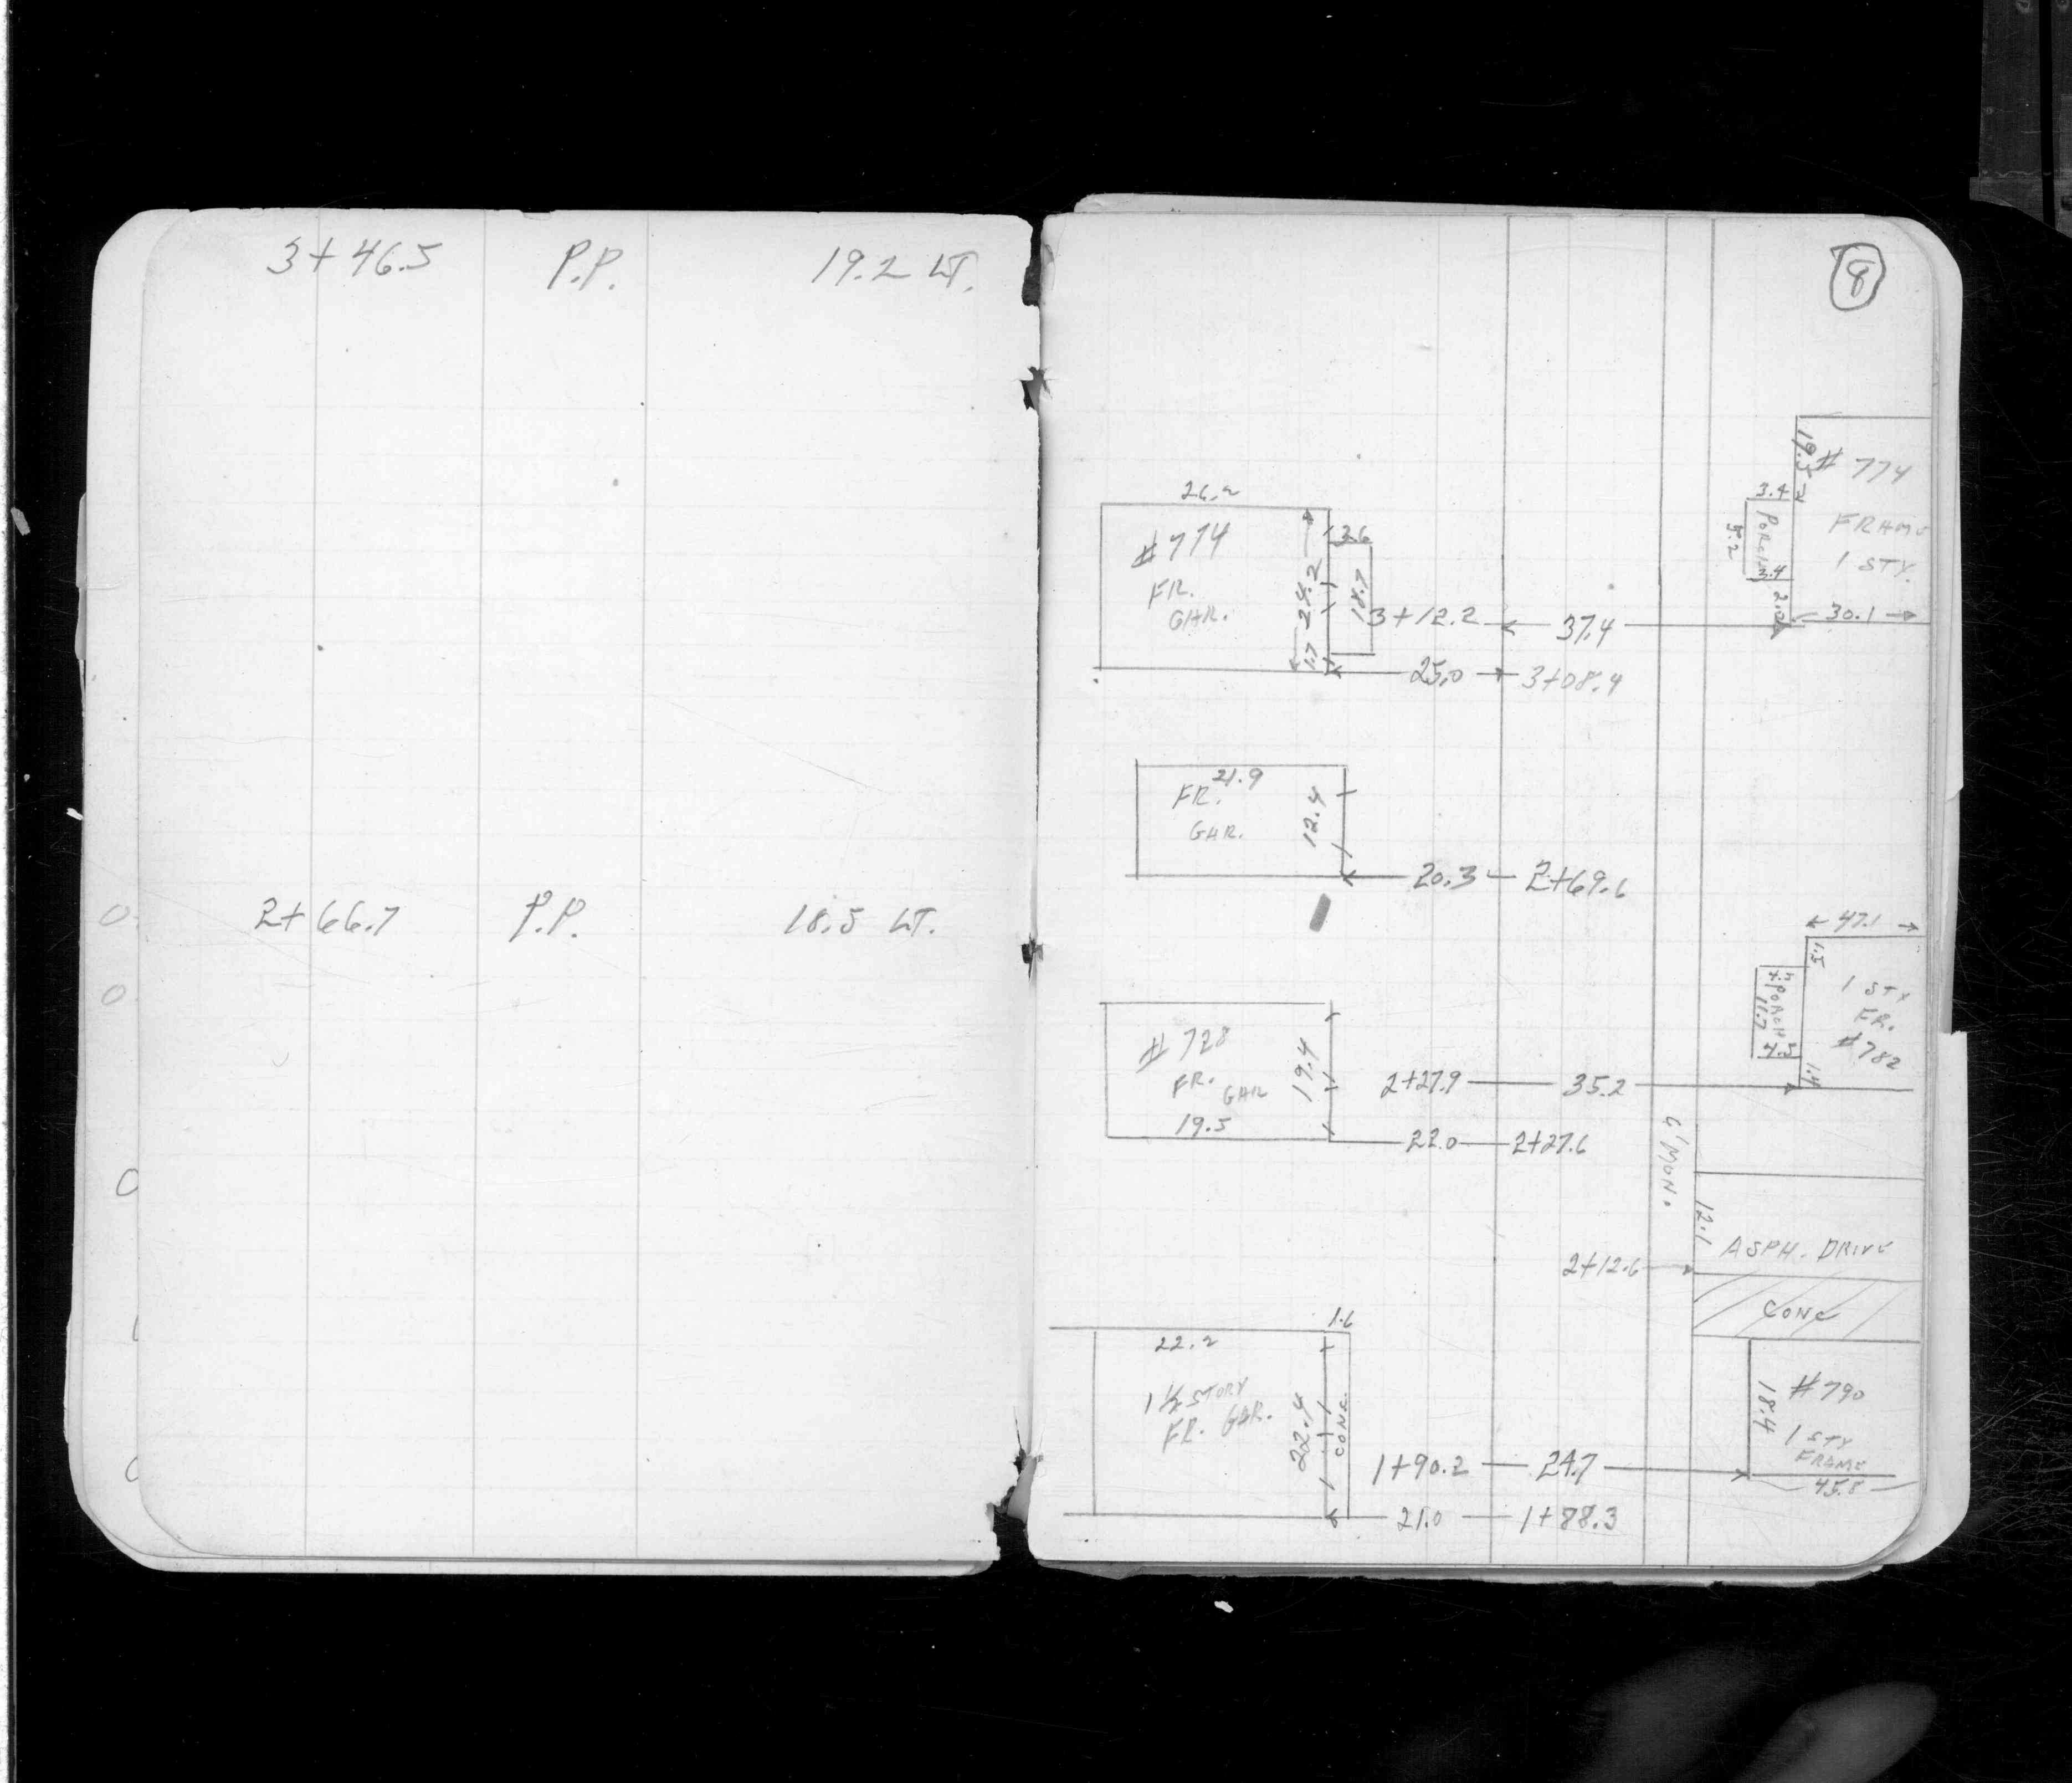 3+46.5 P.P. 19.2 LT.
2+66.7 P.P. 18.5 LT.
8
19.3 # 774
FRAME
1 STY.
3.4
PORCH
5.2
3.4
2.0
30.1
26.2
# 774
FR.
GAR.
24.2
3.6
18.7
1.7
3+12.2 37.4
25.0 3+08.4
21.9
FR.
GAR.
12.4
20.3 2+69.6
47.1
1.5
1 STY
FR.
# 782
PORCH
11.7
4.5
1.4
# 728
FR.
GAR
19.5
19.4
2+27.9 35.2
22.0 2+27.6
12.1
ASPH. DRIVE
2+12.6
CONC
1.6
22.2
1½ STORY
FR. GAR.
22.4
CONC.
# 790
1 STY
FRAME
18.4
45.8
1+90.2 24.7
21.0 1+88.3